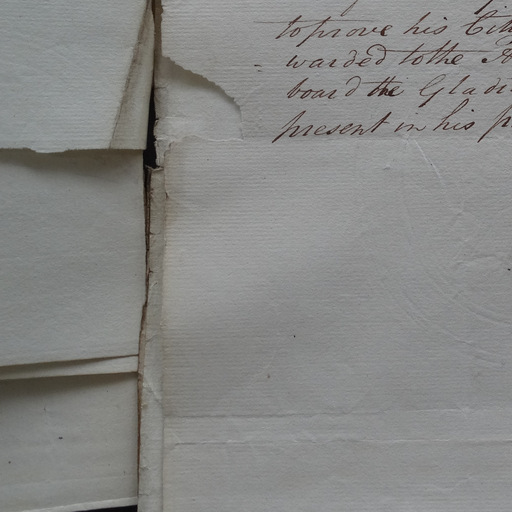 to prove his Citi
warded to the
board the Gladi
present in his